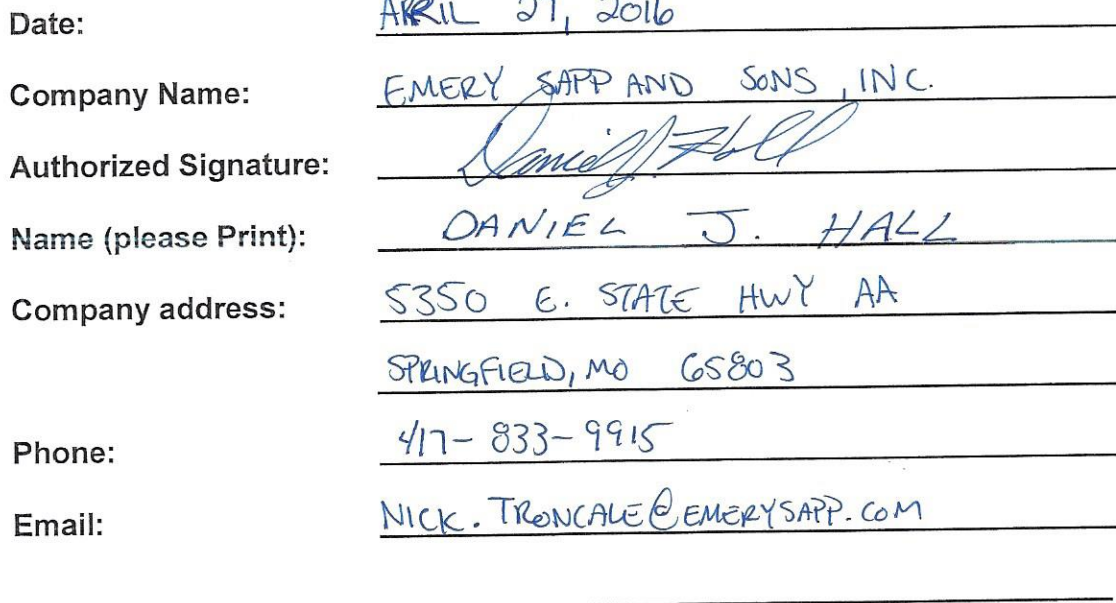 Date: APRIL 21, 2016
Company Name: EMERY SAPP AND SONS, INC.
Authorized Signature: Daniel J. Hall
Name (please Print): DANIEL J. HALL
Company address: 5350 E. STATE HWY AA
SPRINGFIELD, MO 65803
Phone: 417-833-9915
Email: NICK.TRONCALE@EMERYSAPP.COM